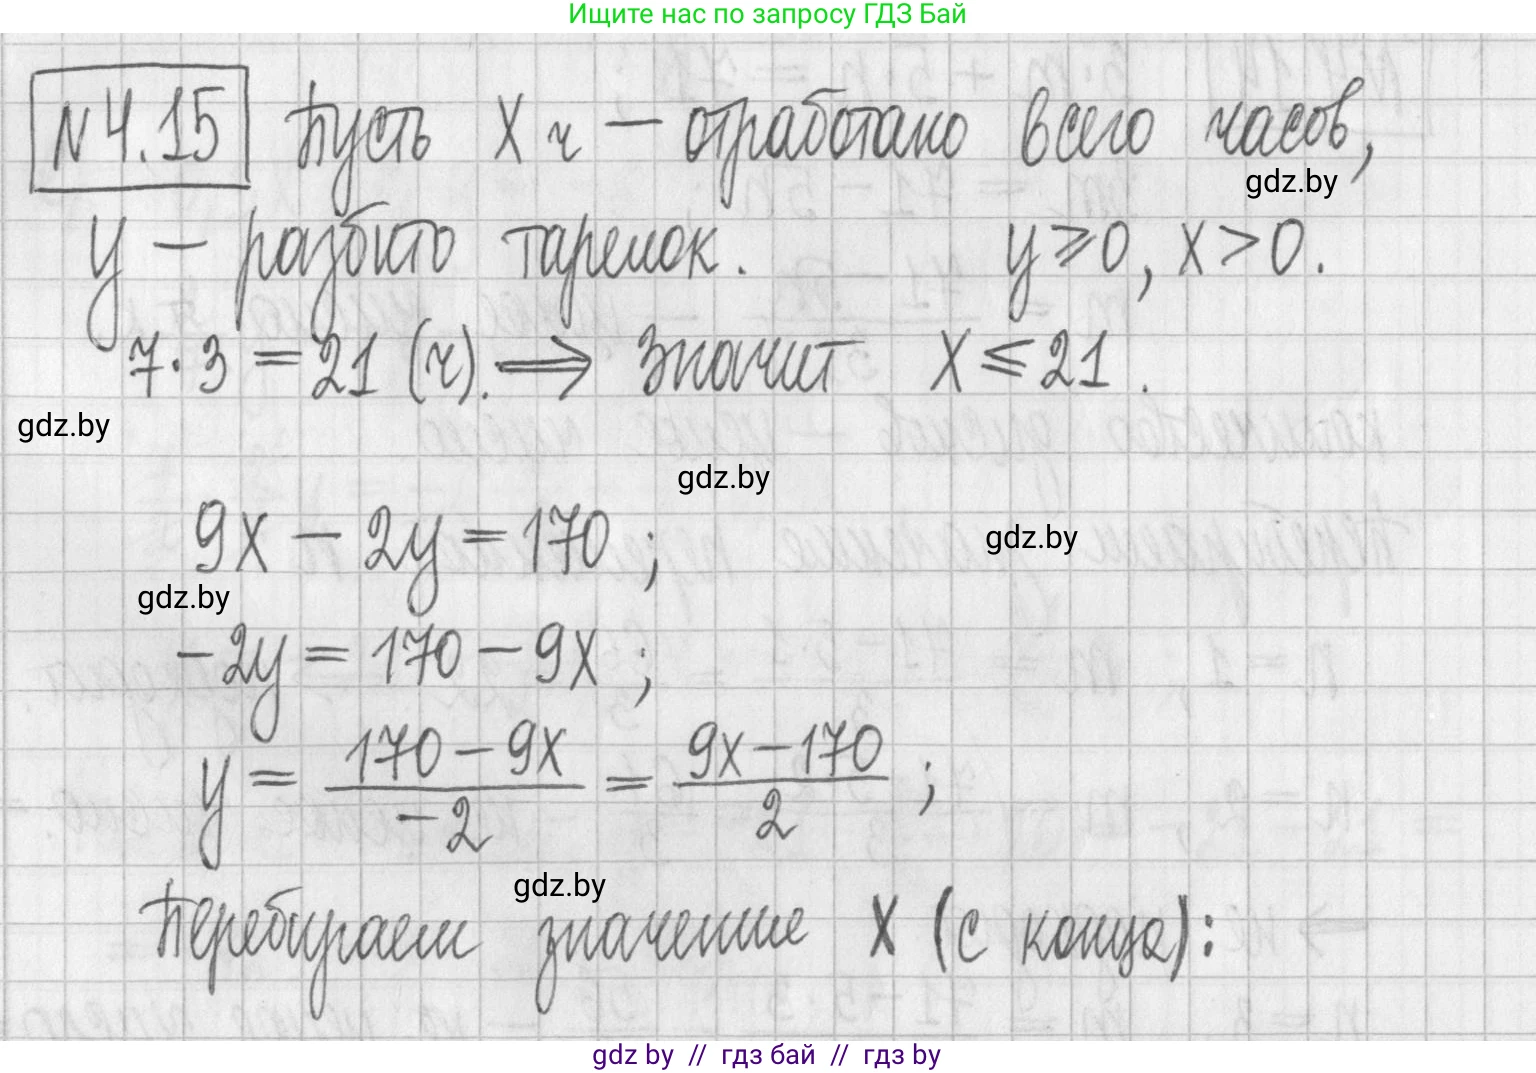 Ищите нас по запросу ГДЗ Бай
N4.15 Пусть X ч — отработано всего часов,
gdz.by
y — разбито тарелок. y ⩾ 0, x > 0.
7·3 = 21 (ч). ⟹ Значит X ⩽ 21.
gdz.by
gdz.by
9x − 2y = 170;
gdz.by
gdz.by
−2y = 170 − 9x;
y = (170 − 9x)/(−2) = (9x − 170)/2;
gdz.by
Перебираем значение X (с конца):
gdz by // гдз бай // гдз by